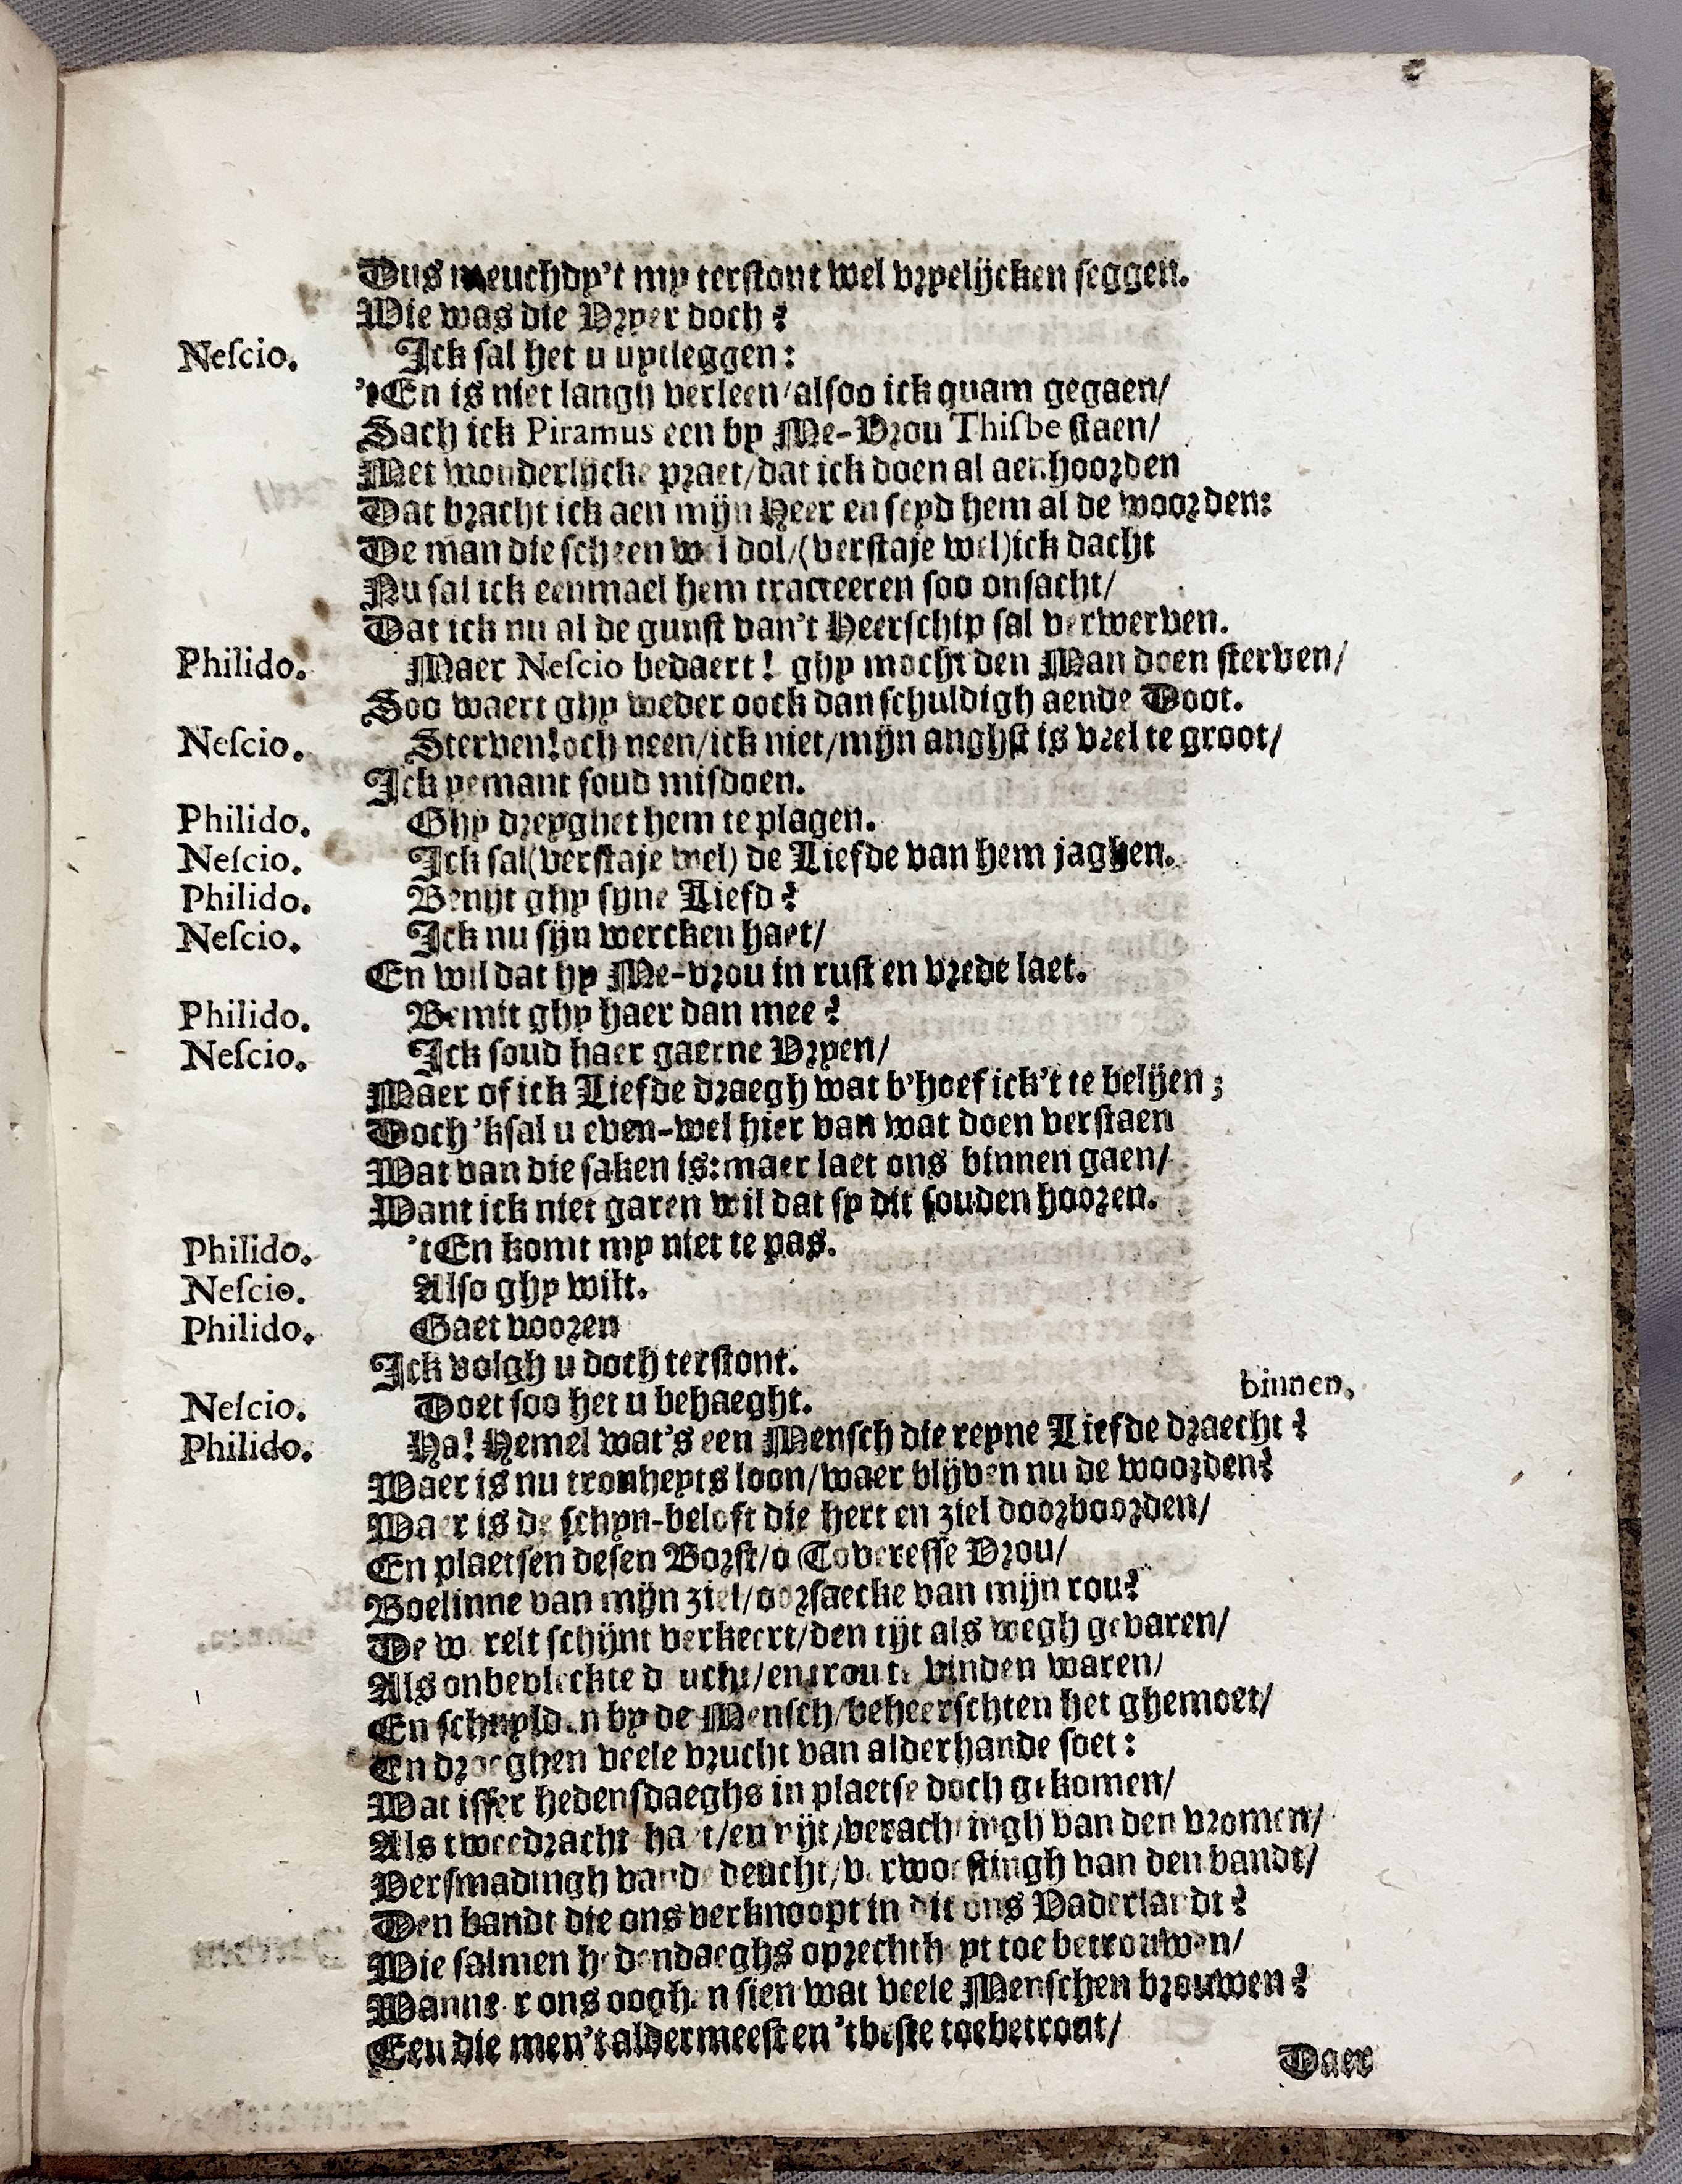 Dus meuchdy't my terstont wel vryelijcken seggen.
Wie was die Vryer doch?
Nescio. Ick sal het u uytleggen:
'tEn is niet langh verleen/alsoo ick quam gegaen/
Sach ick Piramus een by Me-Vrou Thisbe staen/
Met wonderlijcke praet/dat ick doen al aenhoorden
Dat bracht ick aen mijn Heer en seyd hem al de woorden:
De man die scheen wel dol/(verstaje wel)ick dacht
Nu sal ick eenmael hem tracteeren soo onsacht/
Dat ick nu al de gunst van't Heerschip sal verwerven.
Philido. Maer Nescio bedaert! ghy mocht den Man doen sterven/
Soo waert ghy weder oock dan schuldigh aende Doot.
Nescio. Sterven!och neen/ick niet/mijn anghst is veel te groot/
Ick yemant soud misdoen.
Philido. Ghy dreyghet hem te plagen.
Nescio. Ick sal(verstaje wel) de Liefde van hem jaghen.
Philido. Benijt ghy syne Liefd?
Nescio. Ick nu sijn wercken haet/
En wil dat hy Me-vrou in rust en vrede laet.
Philido. Bemint ghy haer dan mee?
Nescio. Ick soud haer gaerne Vryen/
Maer of ick Liefde draegh wat b'hoef ick't te belijen;
Doch 'ksal u even-wel hier van wat doen verstaen
Wat van die saken is:maer laet ons binnen gaen/
Want ick niet garen wil dat sy dit souden hooren.
Philido. 'tEn komt my niet te pas.
Nescio. Also ghy wilt.
Philido. Gaet vooren
Ick volgh u doch terstont.
binnen.
Nescio. Doet soo het u behaeght.
Philido. Ha! Hemel wat's een Mensch die reyne Liefde draecht?
Waer is nu trouheyts loon/waer blijven nu de woorden?
Waer is de schyn-beloft die hert en ziel doorboorden/
En plaetsen desen Borst/o Toveresse Vrou/
Boelinne van mijn ziel/oorsaecke van mijn rou?
De werelt schijnt verkeert/den tijt als wegh gevaren/
Als onbevleckte deucht/en trou te vinden waren/
En schuylden by de Mensch/beheerschten het ghemoet/
En droeghen veele vrucht van alderhande soet:
Wat isser hedensdaeghs in plaetse doch gekomen/
Als tweedracht haet/en nijt/verachtingh van den vromen/
Versmadingh vande deucht/verwoestingh van den bandt/
Den bandt die ons verknoopt in dit ons Vaderlandt?
Wie salmen hedendaeghs oprechtheyt toe betrouwen/
Wanneer ons ooghen sien wat veele Menschen brouwen?
Een die men't aldermeest en 'tbeste toebetrout/
Daer